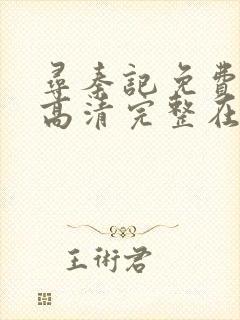 尋秦記免費
高清完整在
王術君